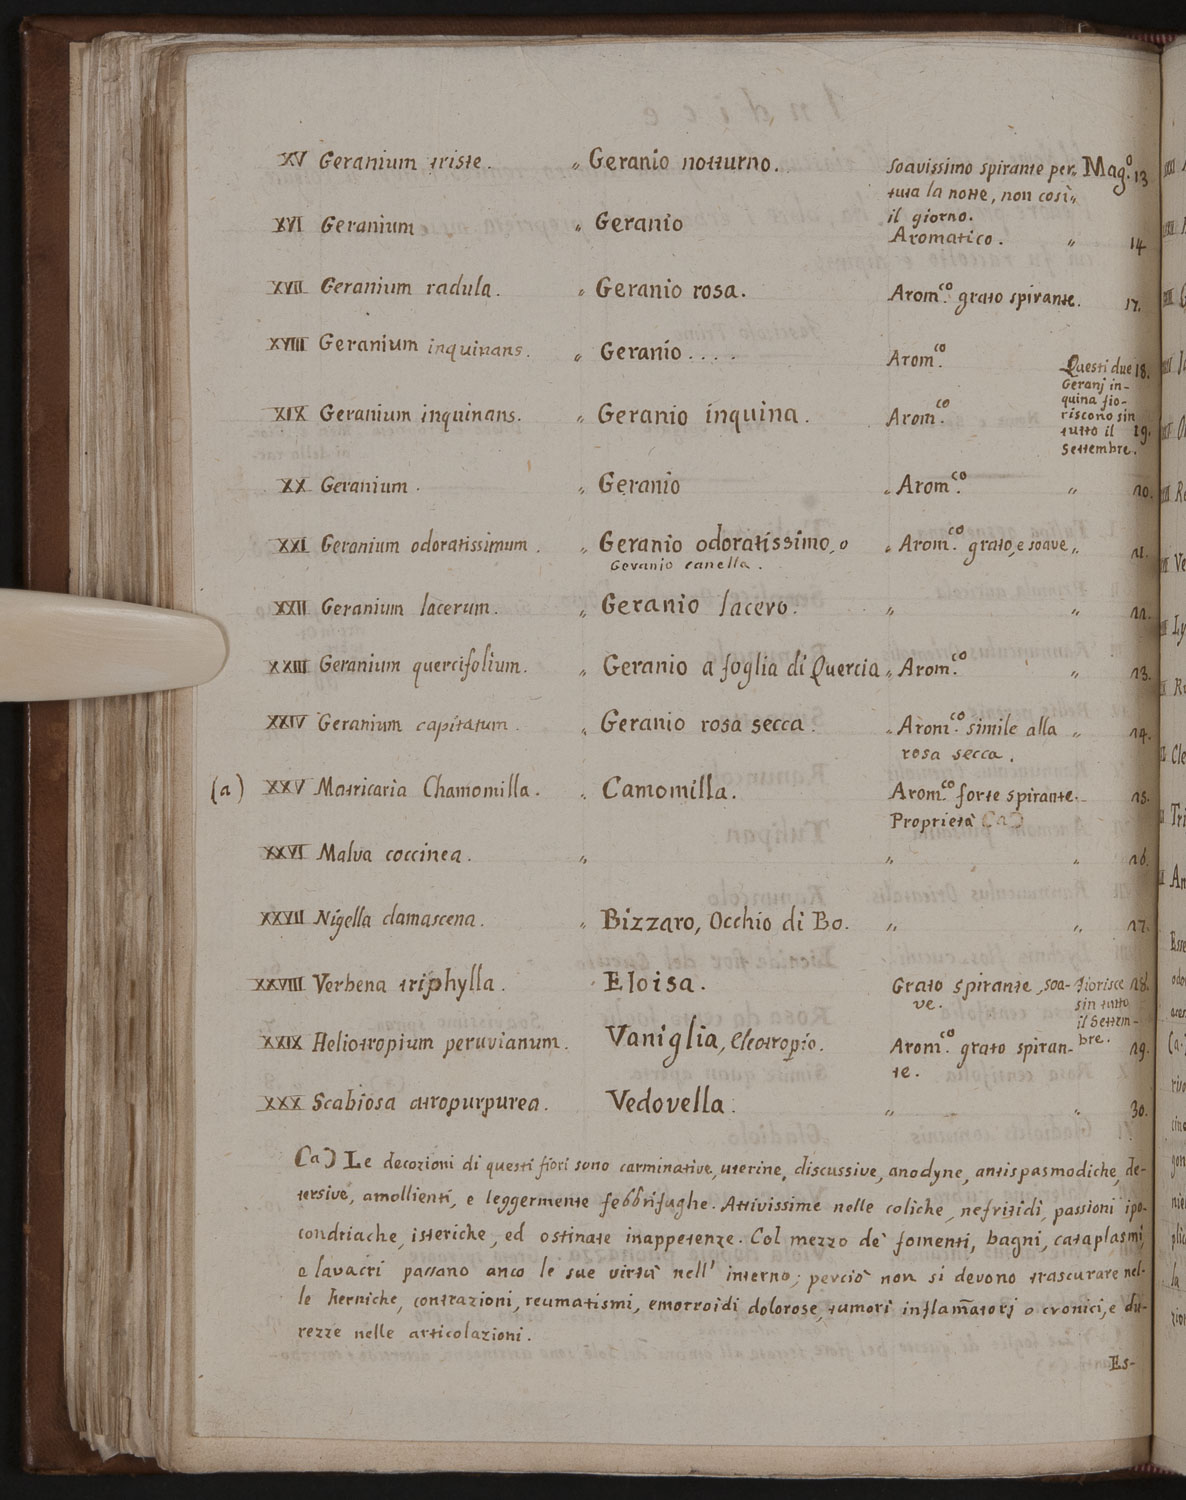 XV Geranium triste. „ Geranio notturno. Soavissimo spirante per„ Mag.o 13
tutta la notte, non così„
il giorno.
XVI Geranium „ Geranio Aromatico. „ 14
XVII Geranium radula. „ Geranio rosa. Arom.co grato spirante. 17.
XVIII Geranium inquinans. „ Geranio.... Arom.co Questi due 18.
Geranj in-
quina fio-
XIX Geranium inquinans. „ Geranio inquina. Arom.co riscono sin
tutto il 19.
Settembre.
XX Geranium. „ Geranio „ Arom.co „ 20.
XXI Geranium odoratissimum. „ Geranio odoratissimo, o „ Arom.co grato, e soave „ 21.
Geranio canella.
XXII Geranium lacerum. „ Geranio lacero. „ „ 22.
XXIII Geranium quercifolium. „ Geranio a foglia di Quercia „ Arom.co „ 23.
XXIV Geranium capitatum. „ Geranio rosa secca. „ Arom.co simile alla „ 24.
rosa secca.
(a) XXV Matricaria Chamomilla. „ Camomilla. Arom.co forte spirante. 25.
Proprietà (a)
XXVI Malva coccinea. „ „ „ 26.
XXVII Nigella damascena. „ Bizzaro, Occhio di Bo. „ „ 27.
XXVIII Verbena triphylla. Eloisa. Grato spirante, soa- fiorisce 28.
ve. sin tutto
il Settem-
XXIX Heliotropium peruvianum. Vaniglia, Eleotropio. Arom.co grato spiran- bre. 29.
te.
XXX Scabiosa atropurpurea. Vedovella. „ „ 30.
(a) Le decozioni di questi fiori sono carminative, uterine, discussive, anodyne, antispasmodiche, de-
tersive, amollienti, e leggermente febbrifughe. Attivissime nelle coliche, nefritidi, passioni ipo-
condriache, isteriche, ed ostinate inappetenze. Col mezzo de' fomenti, bagni, cataplasmi,
e lavacri passano anco le sue virtù nell' interno; perciò non si devono trascurare nel-
le herniche, contrazioni, reumatismi, emorroidi dolorose, tumori inflam̃atorj o cronici, e du-
rezze nelle articolazioni.
Es-